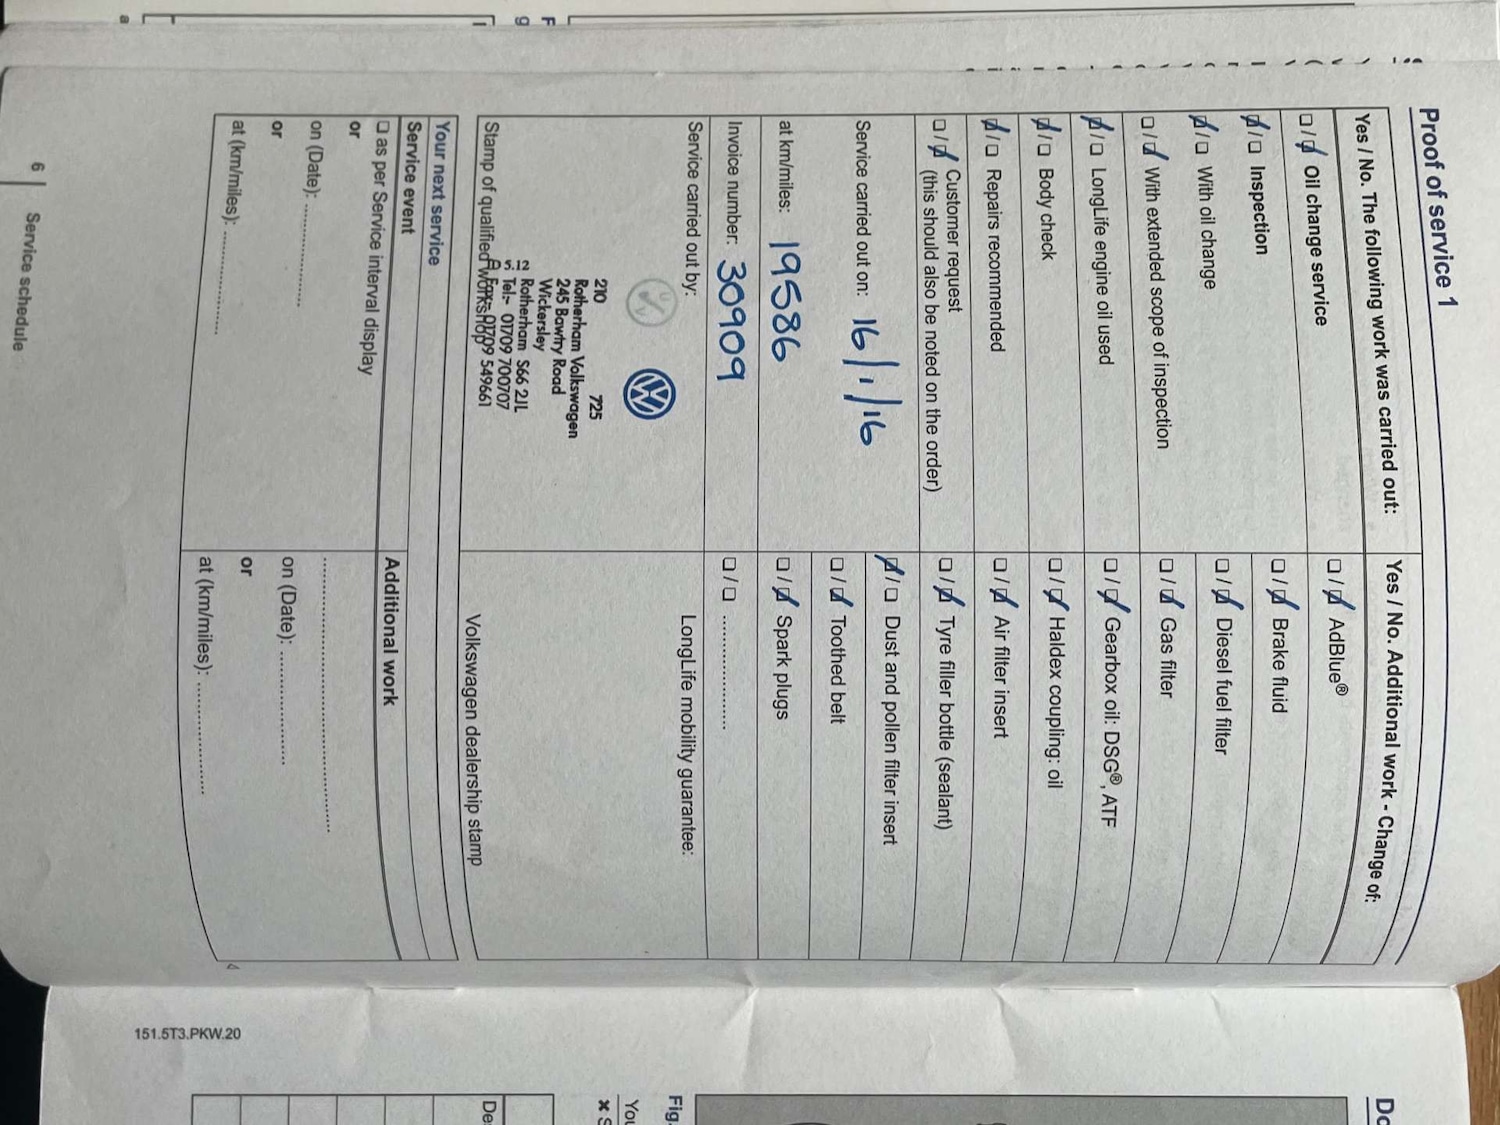 Proof of service 1
Yes / No. The following work was carried out:
Oil change service
Inspection
With oil change
With extended scope of inspection
LongLife engine oil used
Body check
Repairs recommended
Customer request
(this should also be noted on the order)
Service carried out on: 16/1/16
at km/miles: 19586
Invoice number: 30909
Service carried out by:
210 725
Rotherham Volkswagen
245 Bawtry Road
Wickersley
Rotherham S66 2JL
5.12 Tel:- 01709 700707
Fax:- 01709 549661
Stamp of qualified workshop
Yes / No. Additional work - Change of:
AdBlue®
Brake fluid
Diesel fuel filter
Gas filter
Gearbox oil: DSG®, ATF
Haldex coupling: oil
Air filter insert
Tyre filler bottle (sealant)
Dust and pollen filter insert
Toothed belt
Spark plugs
..............
LongLife mobility guarantee:
Volkswagen dealership stamp
Your next service
Service event
as per Service interval display
or
on (Date): ..............
or
at (km/miles): ..............
Additional work
..............
on (Date): ..............
or
at (km/miles): ..............
6 | Service schedule
151.5T3.PKW.20
Fig.